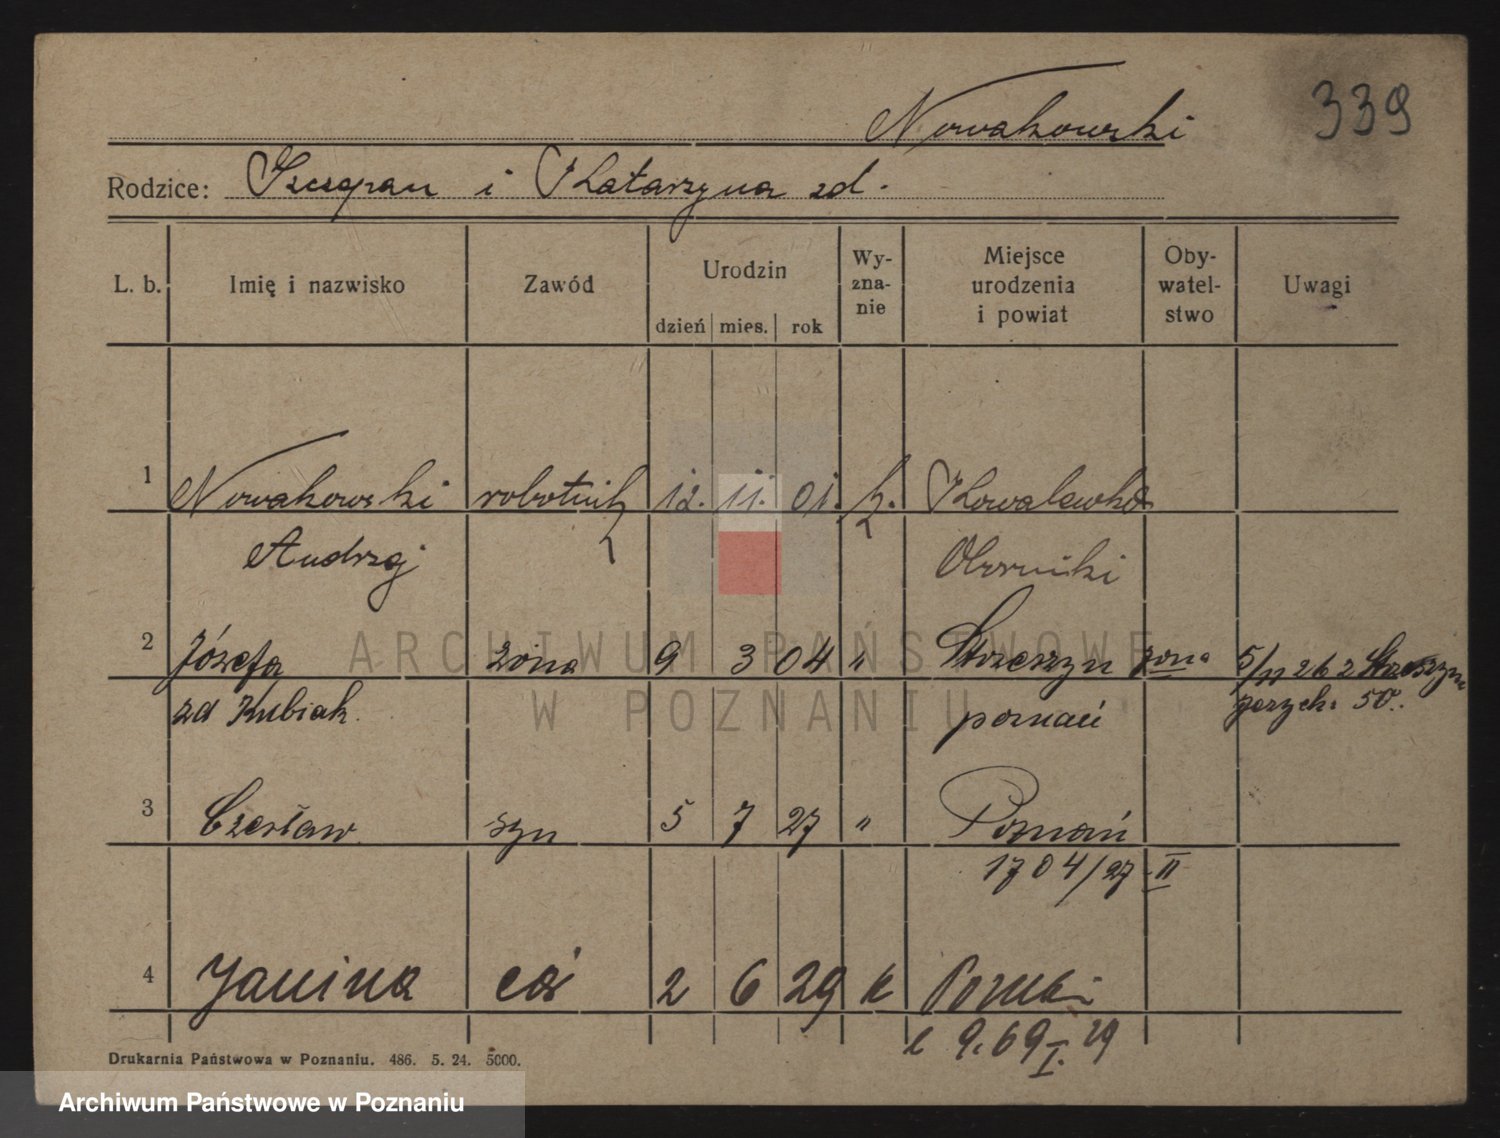 339
Nowakowski
Rodzice: Szczepan i Katarzyna zd.
L. b. Imię i nazwisko Zawód Urodzin dzień mies. rok Wy-zna-nie Miejsce urodzenia i powiat Oby-watel-stwo Uwagi
1 Nowakowski robotnik 12. 11. 01. k. Kowalewko
Andrzej Oborniki
2 Józefa żona 9 3 04 " Strzeszyn żona 5/11 26 2 Strzeszyn
zd Kubiak poznań przych. 50.
3 Czesław syn 5 7 27 " Poznań
1704/27 II
4 Janina có 2 6 29 k Poznań
9.69 I. 29
Drukarnia Państwowa w Poznaniu. 486. 5. 24. 5000.
ARCHIWUM PAŃSTWOWE
W POZNANIU
Archiwum Państwowe w Poznaniu